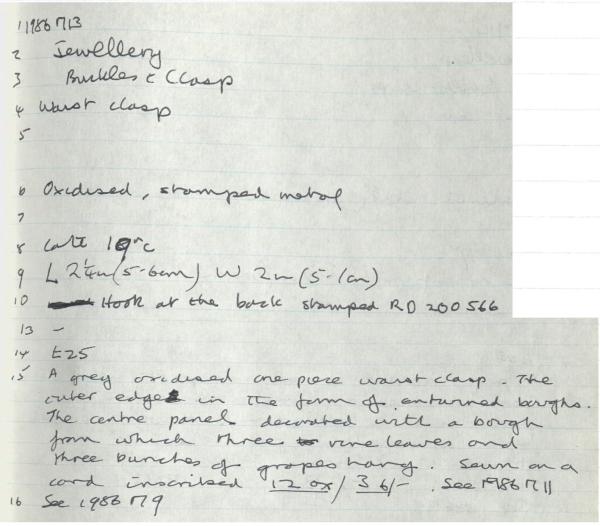 1 1986 713
2 Jewellery
3 Buckles & Clasp
4 Waist clasp
5
6 Oxidised, stamped metal
7
8 Late 19thC
9 L 2¼in (5-6cm) W 2in (5-1cm)
10 Hook at the back stamped RD 200566
13 -
14 £25
15 A grey oxidised one piece waist clasp. The
outer edges in the form of enturned boughs.
The centre panel decorated with a bough
from which three vine leaves and
three bunches of grapes hang. Sewn on a
card inscribed 12 ox/ 36/-. See 1986 711
16 See 1986 719